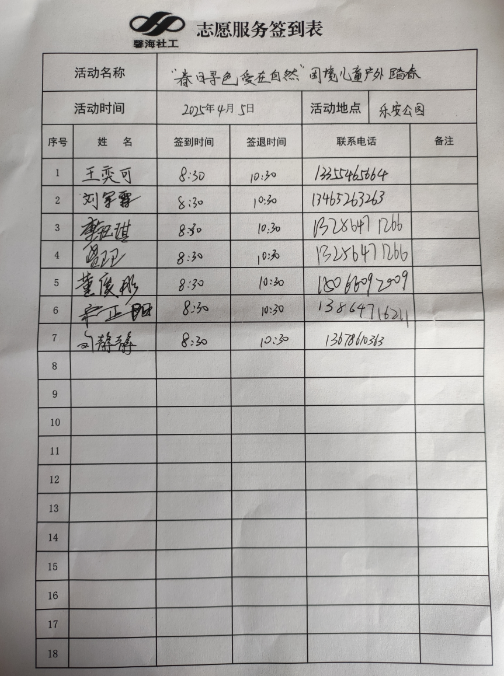 馨海社工
志愿服务签到表
活动名称 "春日寻色 爱在自然"困境儿童户外踏春
活动时间 2025年4月5日 活动地点 乐安公园
序号 姓 名 签到时间 签退时间 联系电话 备注
1 王奕可 8:30 10:30 13355465664
2 刘宇霏 8:30 10:30 13465263263
3 8:30 10:30 13286471266
4 8:30 10:30 13286471266
5 董俊彤 8:30 10:30 18066092909
6 正阳 8:30 10:30 13864716211
7 静静 8:30 10:30 13678610363
8
9
10
11
12
13
14
15
16
17
18